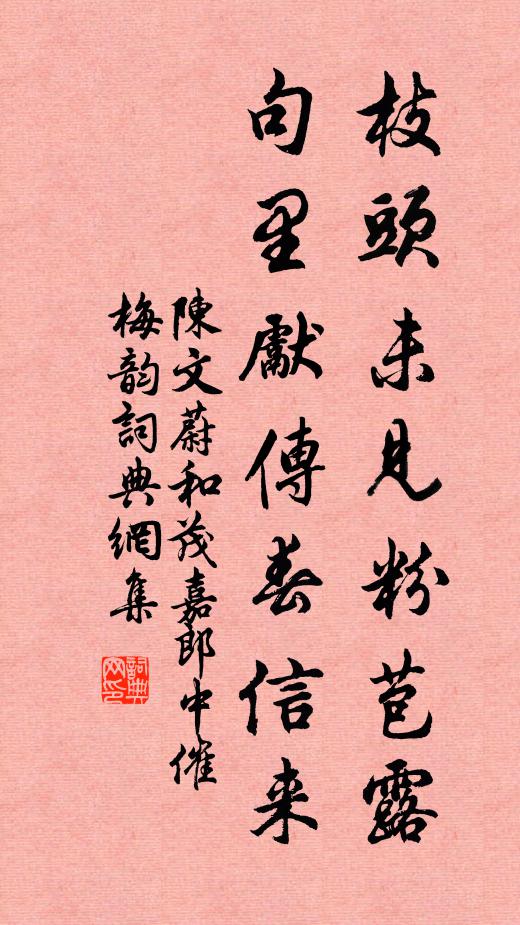 枝頭未見粉苞露
句里獻傳春信来
陳文蔚和茂嘉郎中催
梅韵詞典網集
詞典网印